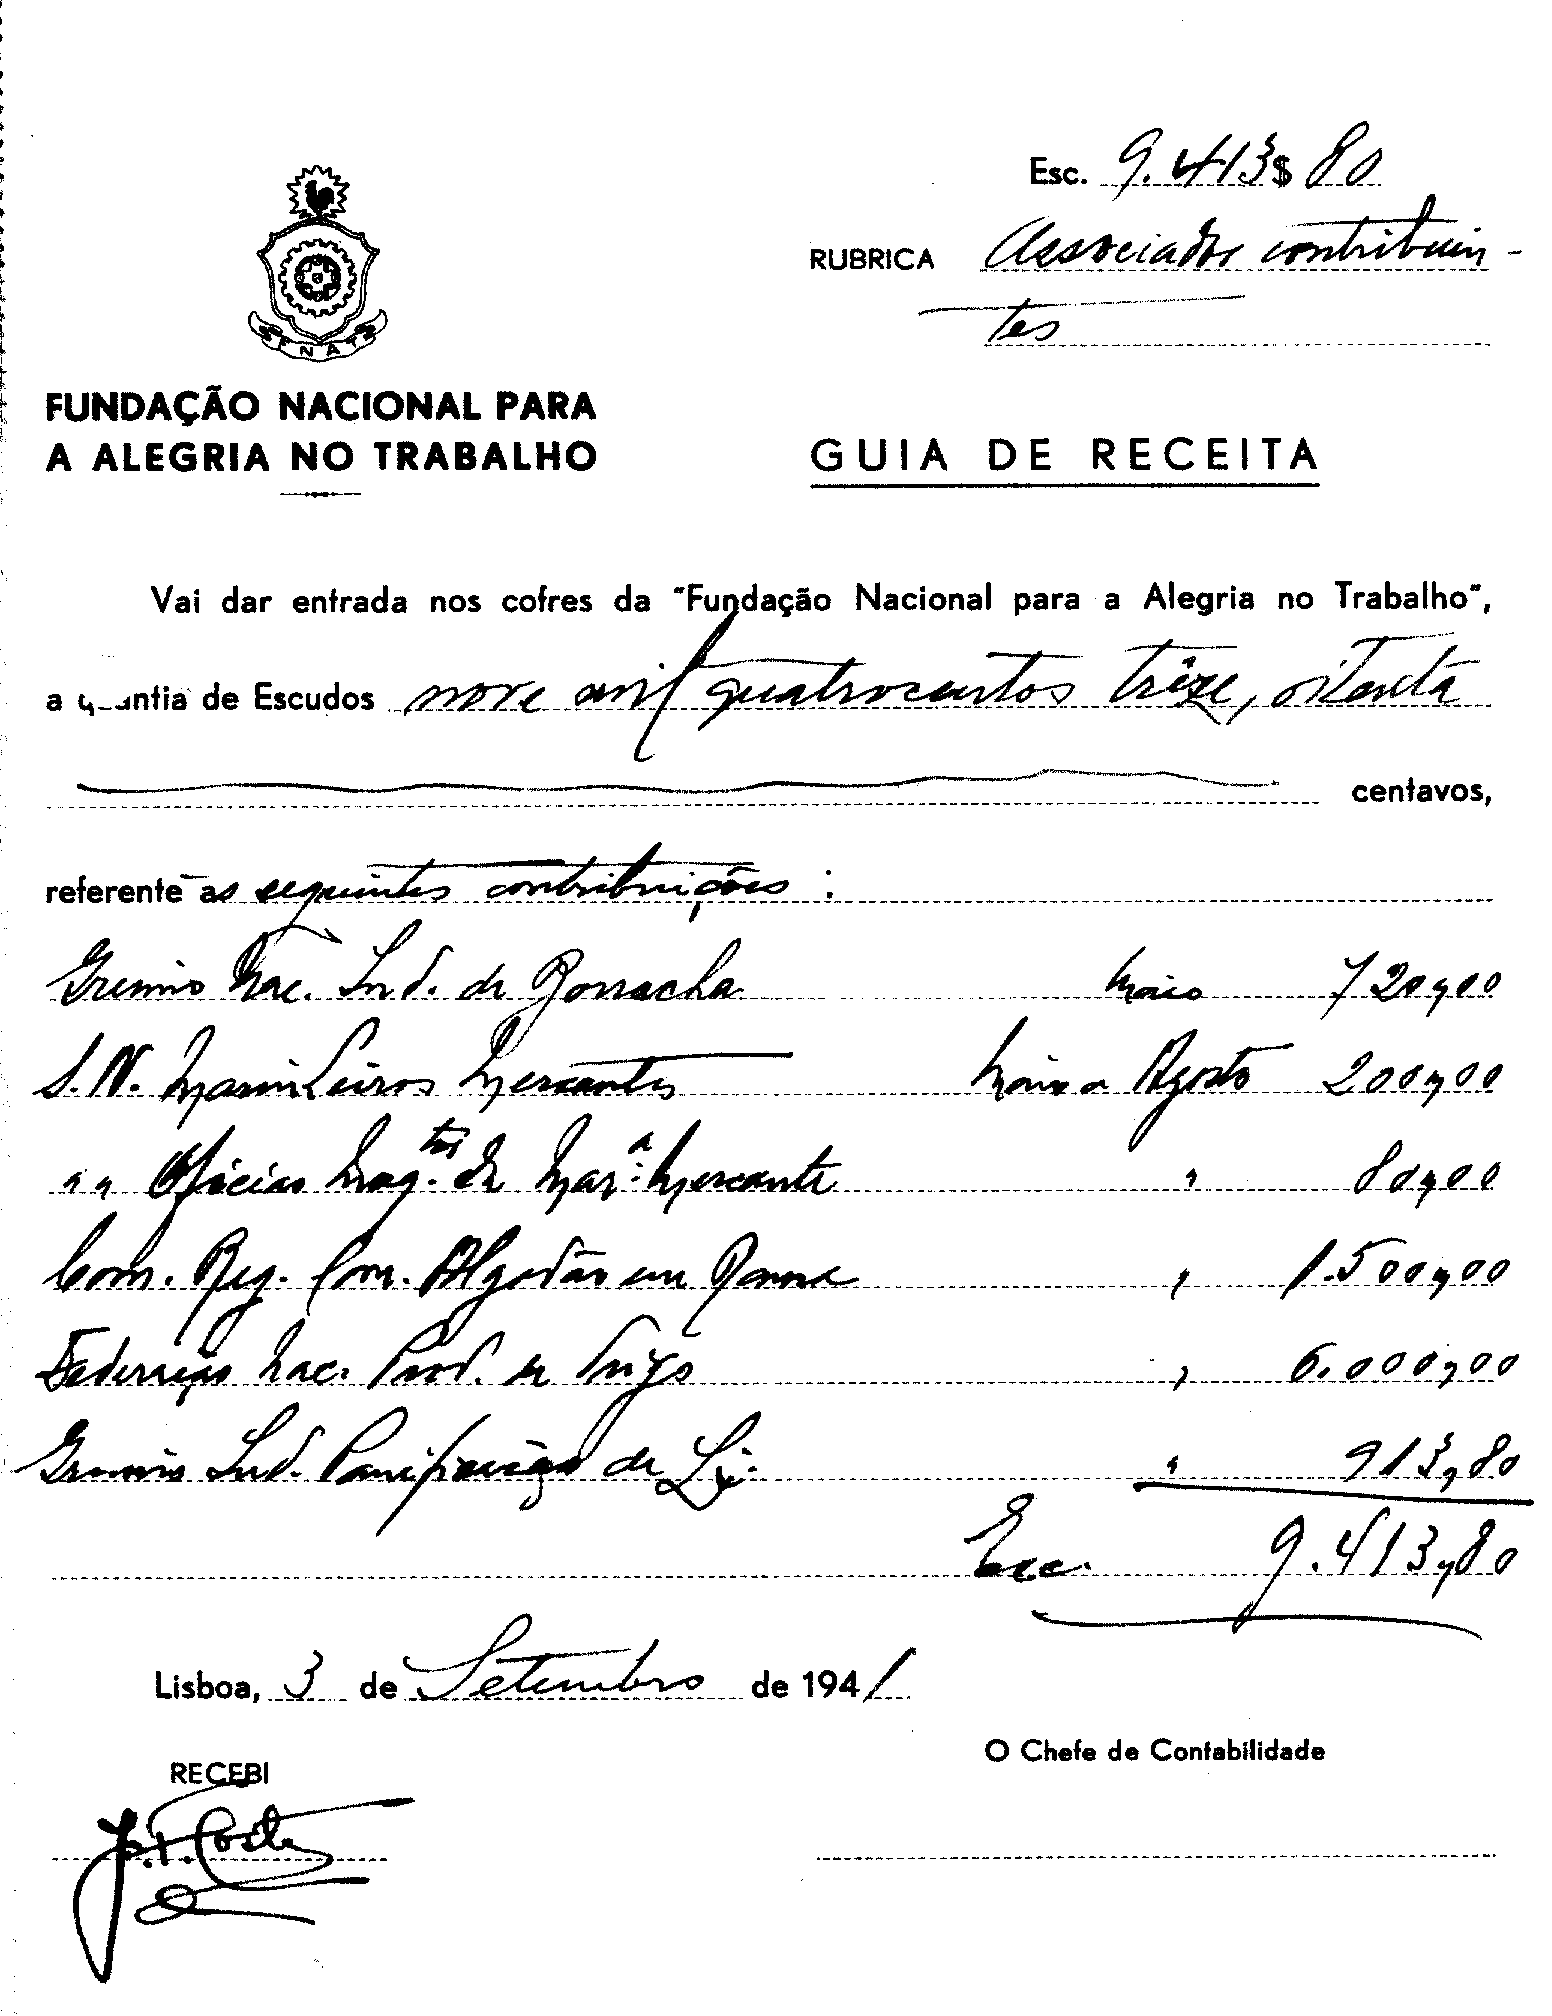 Esc. 9.413$80
RUBRICA Associados contribuin-
tes
FNAT
FUNDAÇÃO NACIONAL PARA
A ALEGRIA NO TRABALHO
GUIA DE RECEITA
Vai dar entrada nos cofres da "Fundação Nacional para a Alegria no Trabalho",
a quantia de Escudos nove mil quatrocentos trêze, oitenta
centavos,
referente as seguintes contribuições:
Gremio Nac. Ind. de Borracha Maio 720,00
S.N. Marinheiros Mercantes Maio a Agosto 200,00
" " Oficiais Maq.tas da Mar.a Mercante " 80,00
Com. Reg. Com. Algodão em Rama " 1.500,00
Federação Nac. Prod. de Trigo " 6.000,00
Gremio Ind. Panificação de Lx. " 913,80
Esc. 9.413,80
Lisboa, 3 de Setembro de 1941
O Chefe de Contabilidade
RECEBI
J.T. Costa